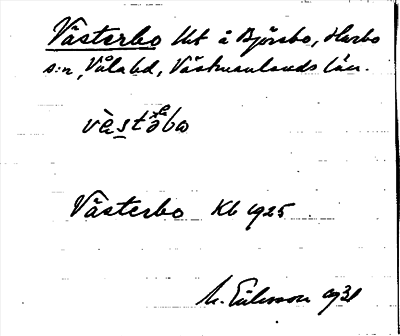 Västerbo lht å Björsbo, Harbo
s:n, Våla hd, Västmanlands län.
vèstəba
Västerbo Kb 1925
M. Eriksson 1931